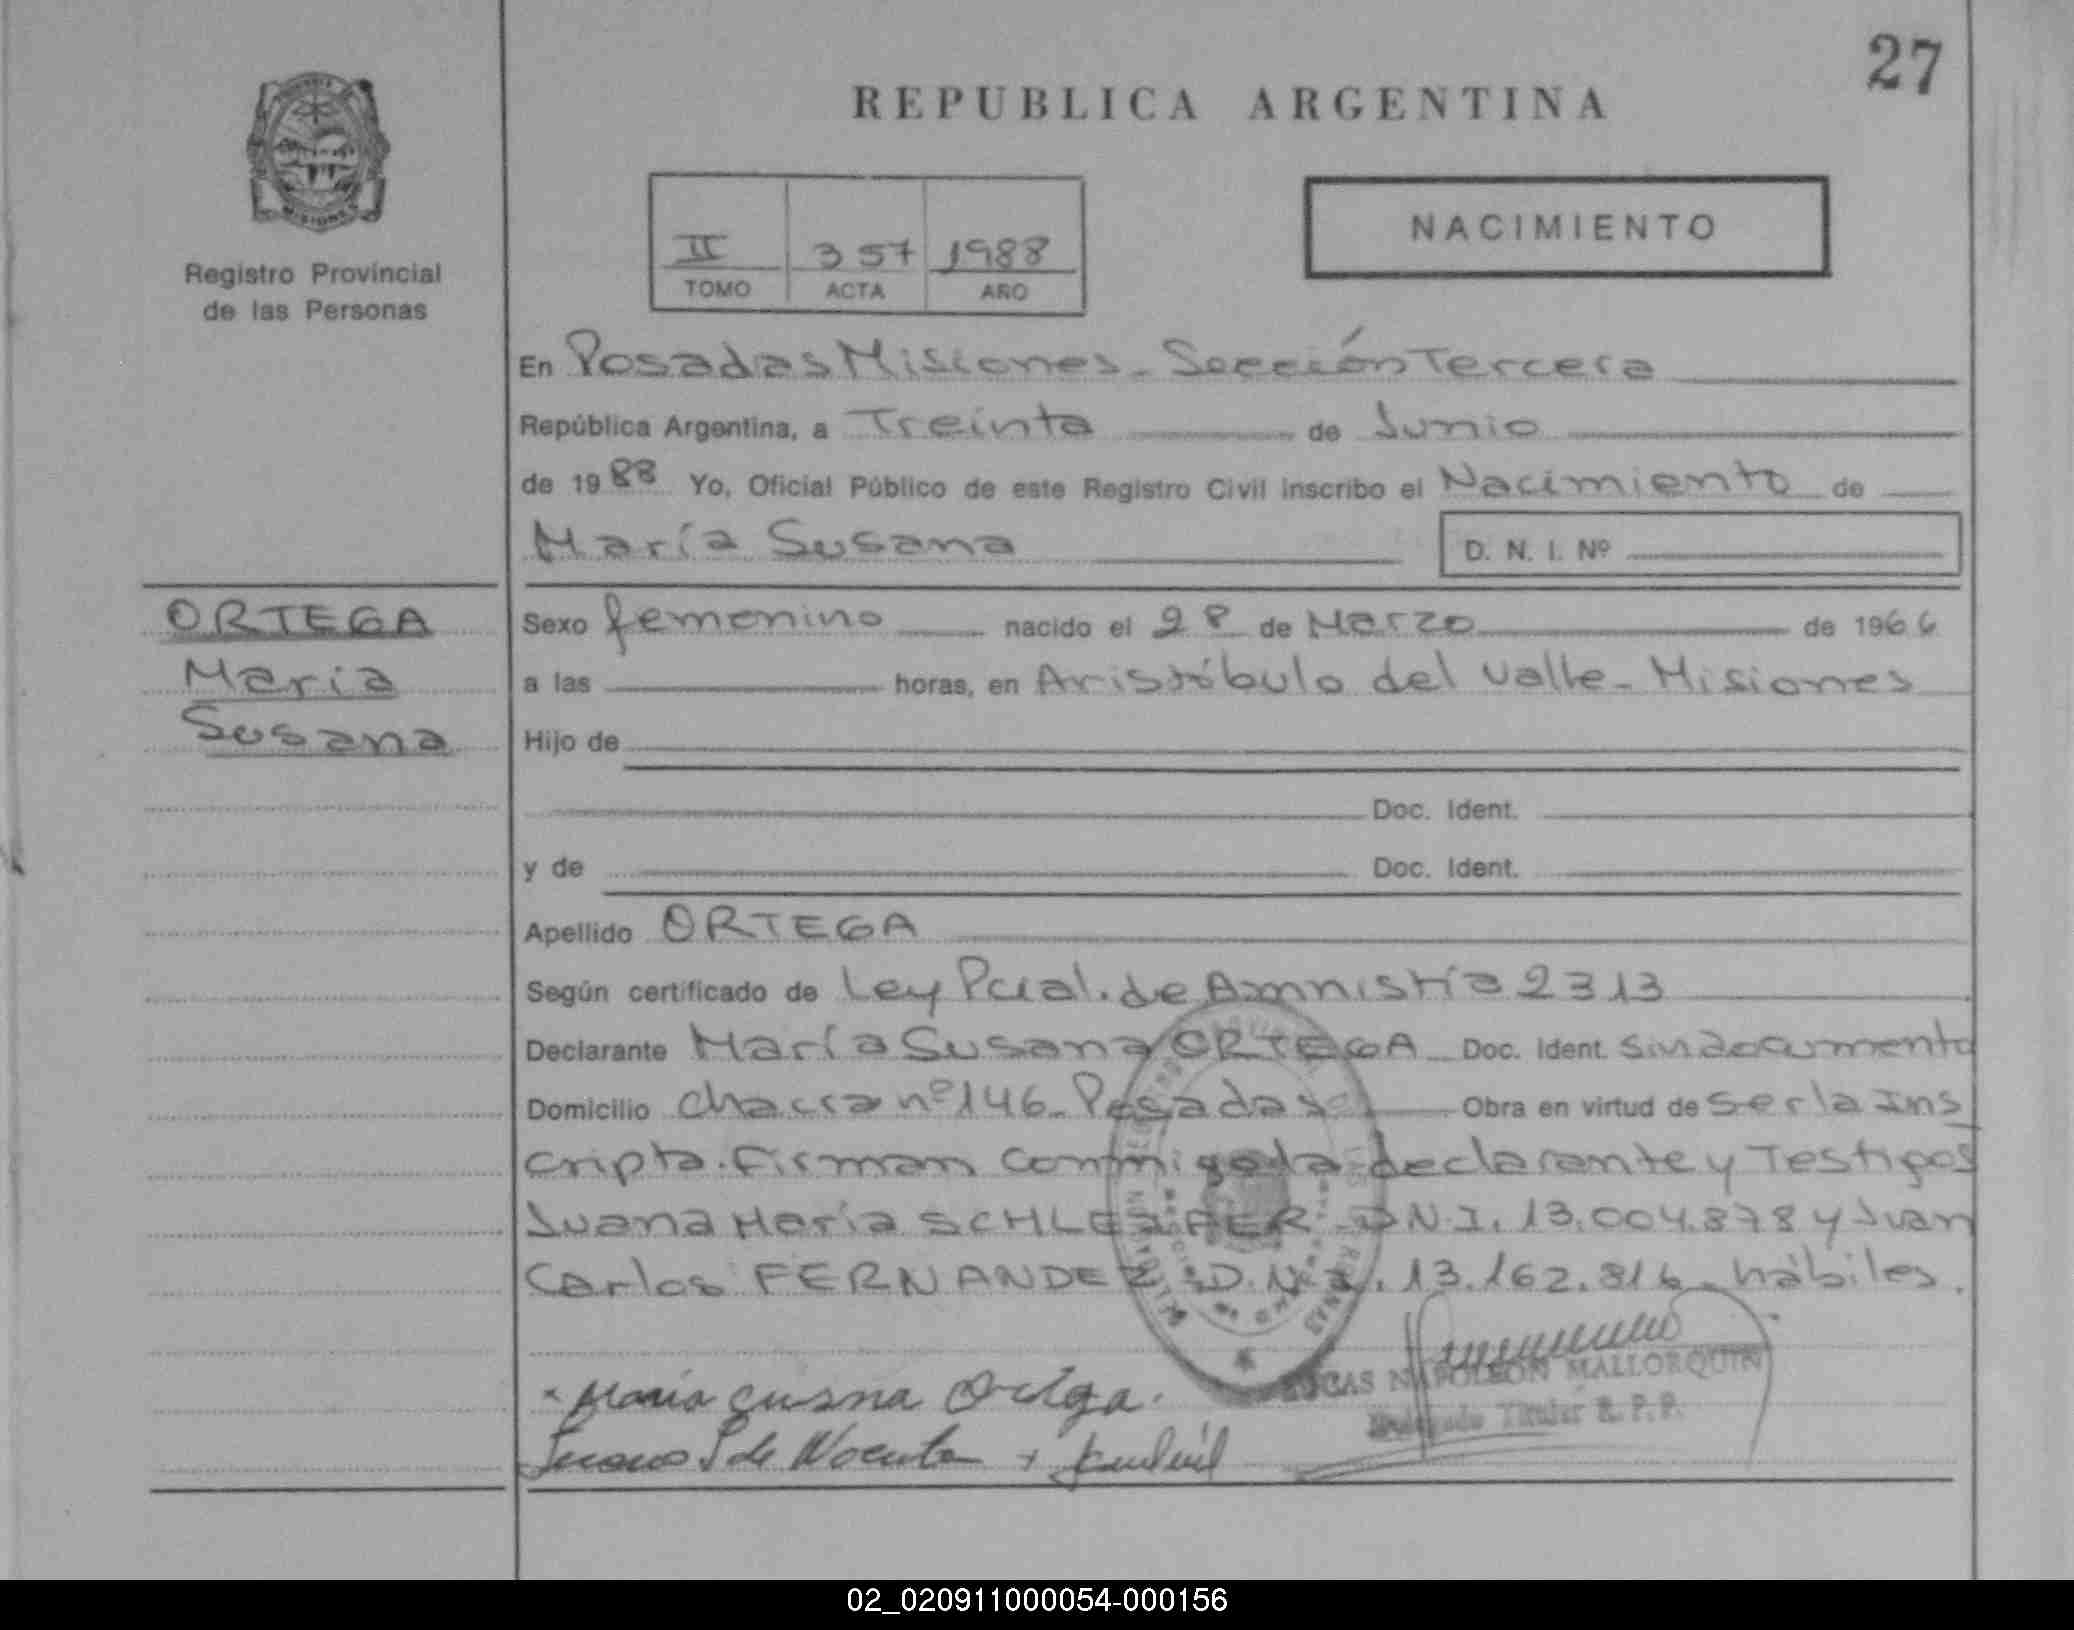 27
REPUBLICA ARGENTINA
MISIONES
Registro Provincial
de las Personas
II 357 1988
TOMO ACTA AÑO
NACIMIENTO
En Posadas Misiones - Sección Tercera
República Argentina, a Treinta de Junio
de 1988 Yo, Oficial Público de este Registro Civil inscribo el Nacimiento de
María Susana D. N. I. Nº
ORTEGA
María
Susana
Sexo femenino nacido el 28 de Marzo de 1966
a las horas, en Aristóbulo del Valle - Misiones
Hijo de
Doc. Ident.
y de Doc. Ident.
Apellido ORTEGA
Según certificado de Ley Pcial. de Amnistía 2313
Declarante María Susana ORTEGA Doc. Ident. sin documento
Domicilio Chacra nº 146 - Posadas Obra en virtud de ser la Ins
cripta. Firman conmigo la declarante y Testigos
Juana María D.N.I. 13.004.878 y Juan
Carlos FERNANDEZ D.N.I. 13.162.816 - hábiles.
María Susana Ortega.
LUCAS NAPOLEON MALLORQUIN
Delegado Titular R. P. P.
02_020911000054-000156